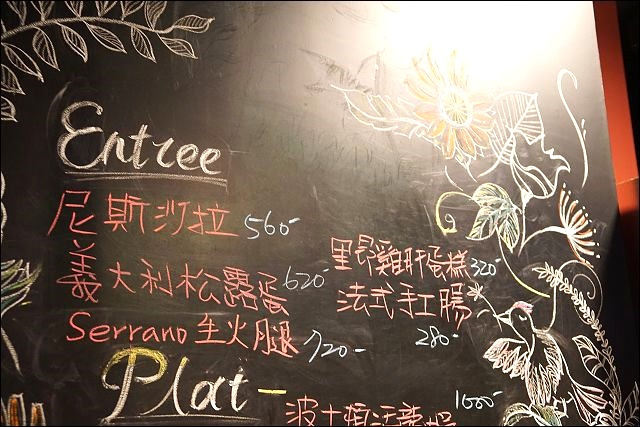 Entree
尼斯沙拉 560-
義大利松露蛋 620-
Serrano 生火腿 720-
里昂雞肝蛋糕 320-
法式手工腸
280-
Plat -
波士頓活 1600-